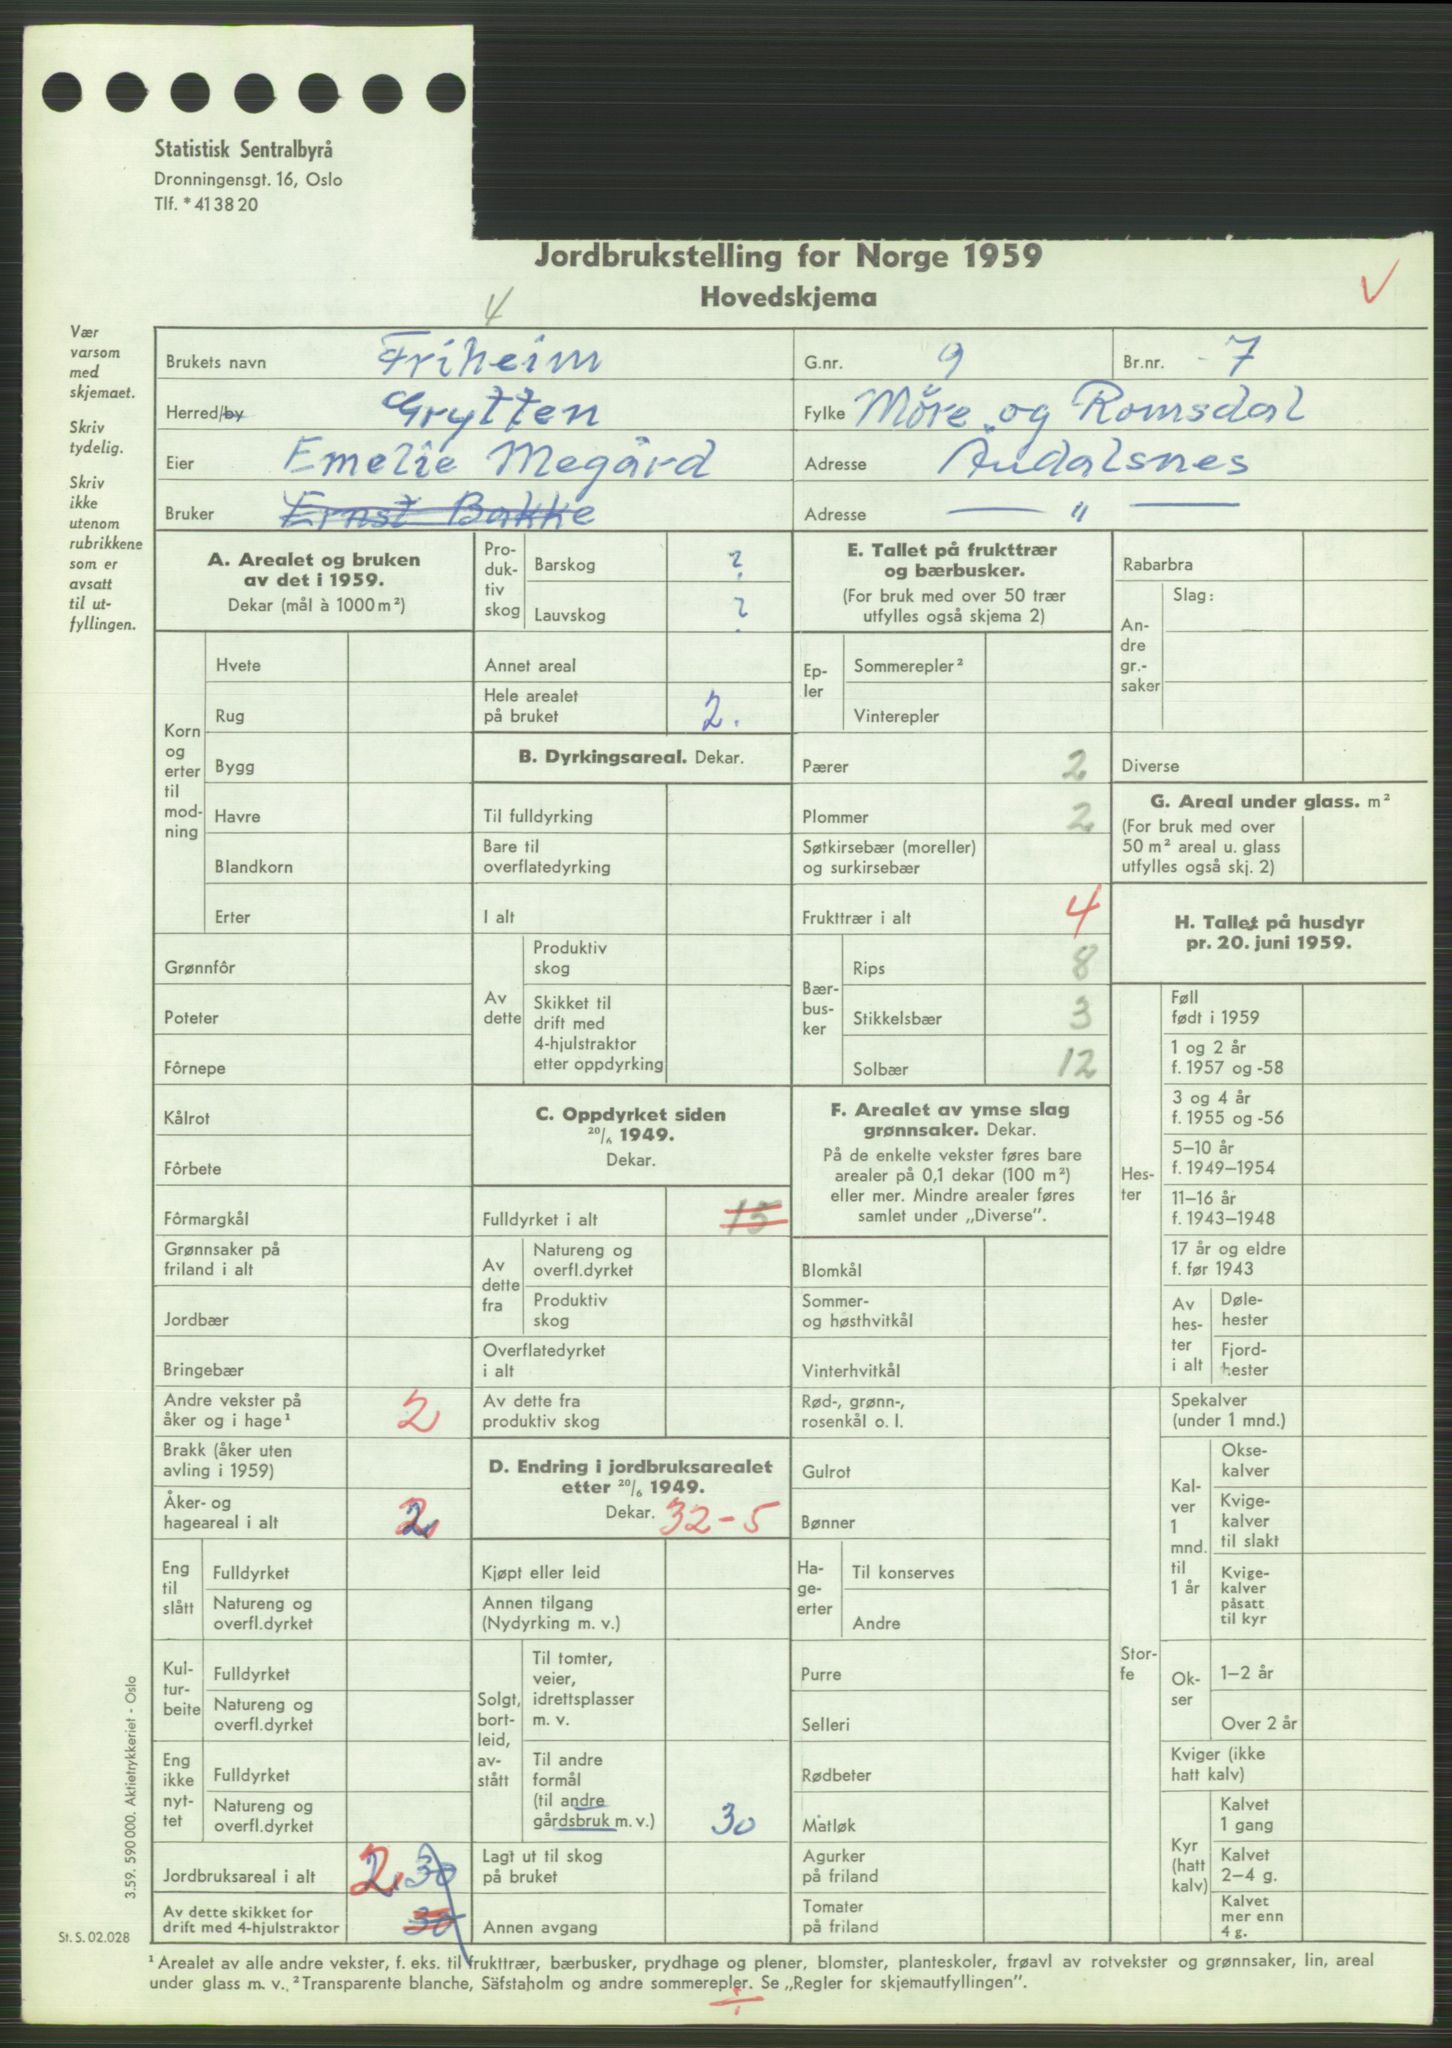 Statistisk Sentralbyrå
Dronningensgt. 16, Oslo
Tlf. * 41 38 20
Jordbrukstelling for Norge 1959
Hovedskjema
4
Vær
varsom
med
skjemaet.
Skriv
tydelig.
Skriv
ikke
utenom
rubrikkene
som er
avsatt
til ut-
fyllingen.
Brukets navn Friheim G.nr. 9 Br.nr. 7
Herred/by Grytten Fylke Möre og Romsdal
Eier Emelie Megård Adresse Åndalsnes
Bruker Ernst Bakke Adresse — " —
A. Arealet og bruken
av det i 1959.
Dekar (mål à 1000 m²)
Korn
og
erter
til
mod-
ning
Hvete
Rug
Bygg
Havre
Blandkorn
Erter
Grønnfôr
Poteter
Fôrnepe
Kålrot
Fôrbete
Fôrmargkål
Grønnsaker på
friland i alt
Jordbær
Bringebær
Andre vekster på
åker og i hage¹ 2
Brakk (åker uten
avling i 1959)
Åker- og
hageareal i alt 2
Eng
til
slått
Fulldyrket
Natureng og
overfl.dyrket
Kul-
tur-
beite
Fulldyrket
Natureng og
overfl.dyrket
Eng
ikke
nyt-
tet
Fulldyrket
Natureng og
overfl.dyrket
Jordbruksareal i alt 2. 30
Av dette skikket for
drift med 4-hjulstraktor 30
Pro-
duk-
tiv
skog
Barskog ?
Lauvskog ?
Annet areal
Hele arealet
på bruket 2.
B. Dyrkingsareal. Dekar.
Til fulldyrking
Bare til
overflatedyrking
I alt
Av
dette
Produktiv
skog
Skikket til
drift med
4-hjulstraktor
etter oppdyrking
C. Oppdyrket siden
20/6 1949.
Dekar.
Fulldyrket i alt 15
Av
dette
fra
Natureng og
overfl.dyrket
Produktiv
skog
Overflatedyrket
i alt
Av dette fra
produktiv skog
D. Endring i jordbruksarealet
etter 20/6 1949.
Dekar. 32-5
Kjøpt eller leid
Annen tilgang
(Nydyrking m. v.)
Solgt,
bort-
leid,
av-
stått
Til tomter,
veier,
idrettsplasser
m. v.
Til andre
formål
(til andre
gårdsbruk m. v.) 30
Lagt ut til skog
på bruket
Annen avgang
E. Tallet på frukttrær
og bærbusker.
(For bruk med over 50 trær
utfylles også skjema 2)
Ep-
ler
Sommerepler²
Vinterepler
Pærer 2
Plommer 2
Søtkirsebær (moreller)
og surkirsebær
Frukttrær i alt 4
Bær-
bus-
ker
Rips 8
Stikkelsbær 3
Solbær 12
F. Arealet av ymse slag
grønnsaker. Dekar.
På de enkelte vekster føres bare
arealer på 0,1 dekar (100 m²)
eller mer. Mindre arealer føres
samlet under „Diverse”.
Blomkål
Sommer-
og høsthvitkål
Vinterhvitkål
Rød-, grønn-,
rosenkål o. l.
Gulrot
Bønner
Ha-
ge-
erter
Til konserves
Andre
Purre
Selleri
Rødbeter
Matløk
Agurker
på friland
Tomater
på friland
Rabarbra
An-
dre
gr.-
saker
Slag:
Diverse
G. Areal under glass. m²
(For bruk med over
50 m² areal u. glass
utfylles også skj. 2)
H. Tallet på husdyr
pr. 20. juni 1959.
Hes-
ter
Føll
født i 1959
1 og 2 år
f. 1957 og -58
3 og 4 år
f. 1955 og -56
5–10 år
f. 1949–1954
11–16 år
f. 1943–1948
17 år og eldre
f. før 1943
Av
hes-
ter
i alt
Døle-
hester
Fjord-
hester
Stor-
fe
Spekalver
(under 1 mnd.)
Kal-
ver
1
mnd.
til
1 år
Okse-
kalver
Kvige-
kalver
til slakt
Kvige-
kalver
påsatt
til kyr
Ok-
ser
1–2 år
Over 2 år
Kviger (ikke
hatt kalv)
Kyr
(hatt
kalv)
Kalvet
1 gang
Kalvet
2–4 g.
Kalvet
mer enn
4 g.
3.59. 590 000. Aktietrykkeriet - Oslo
St. S. 02.028
¹ Arealet av alle andre vekster, f. eks. til frukttrær, bærbusker, prydhage og plener, blomster, planteskoler, frøavl av rotvekster og grønnsaker, lin, areal
under glass m. v. ² Transparente blanche, Säfstaholm og andre sommerepler. Se „Regler for skjemautfyllingen”.
÷